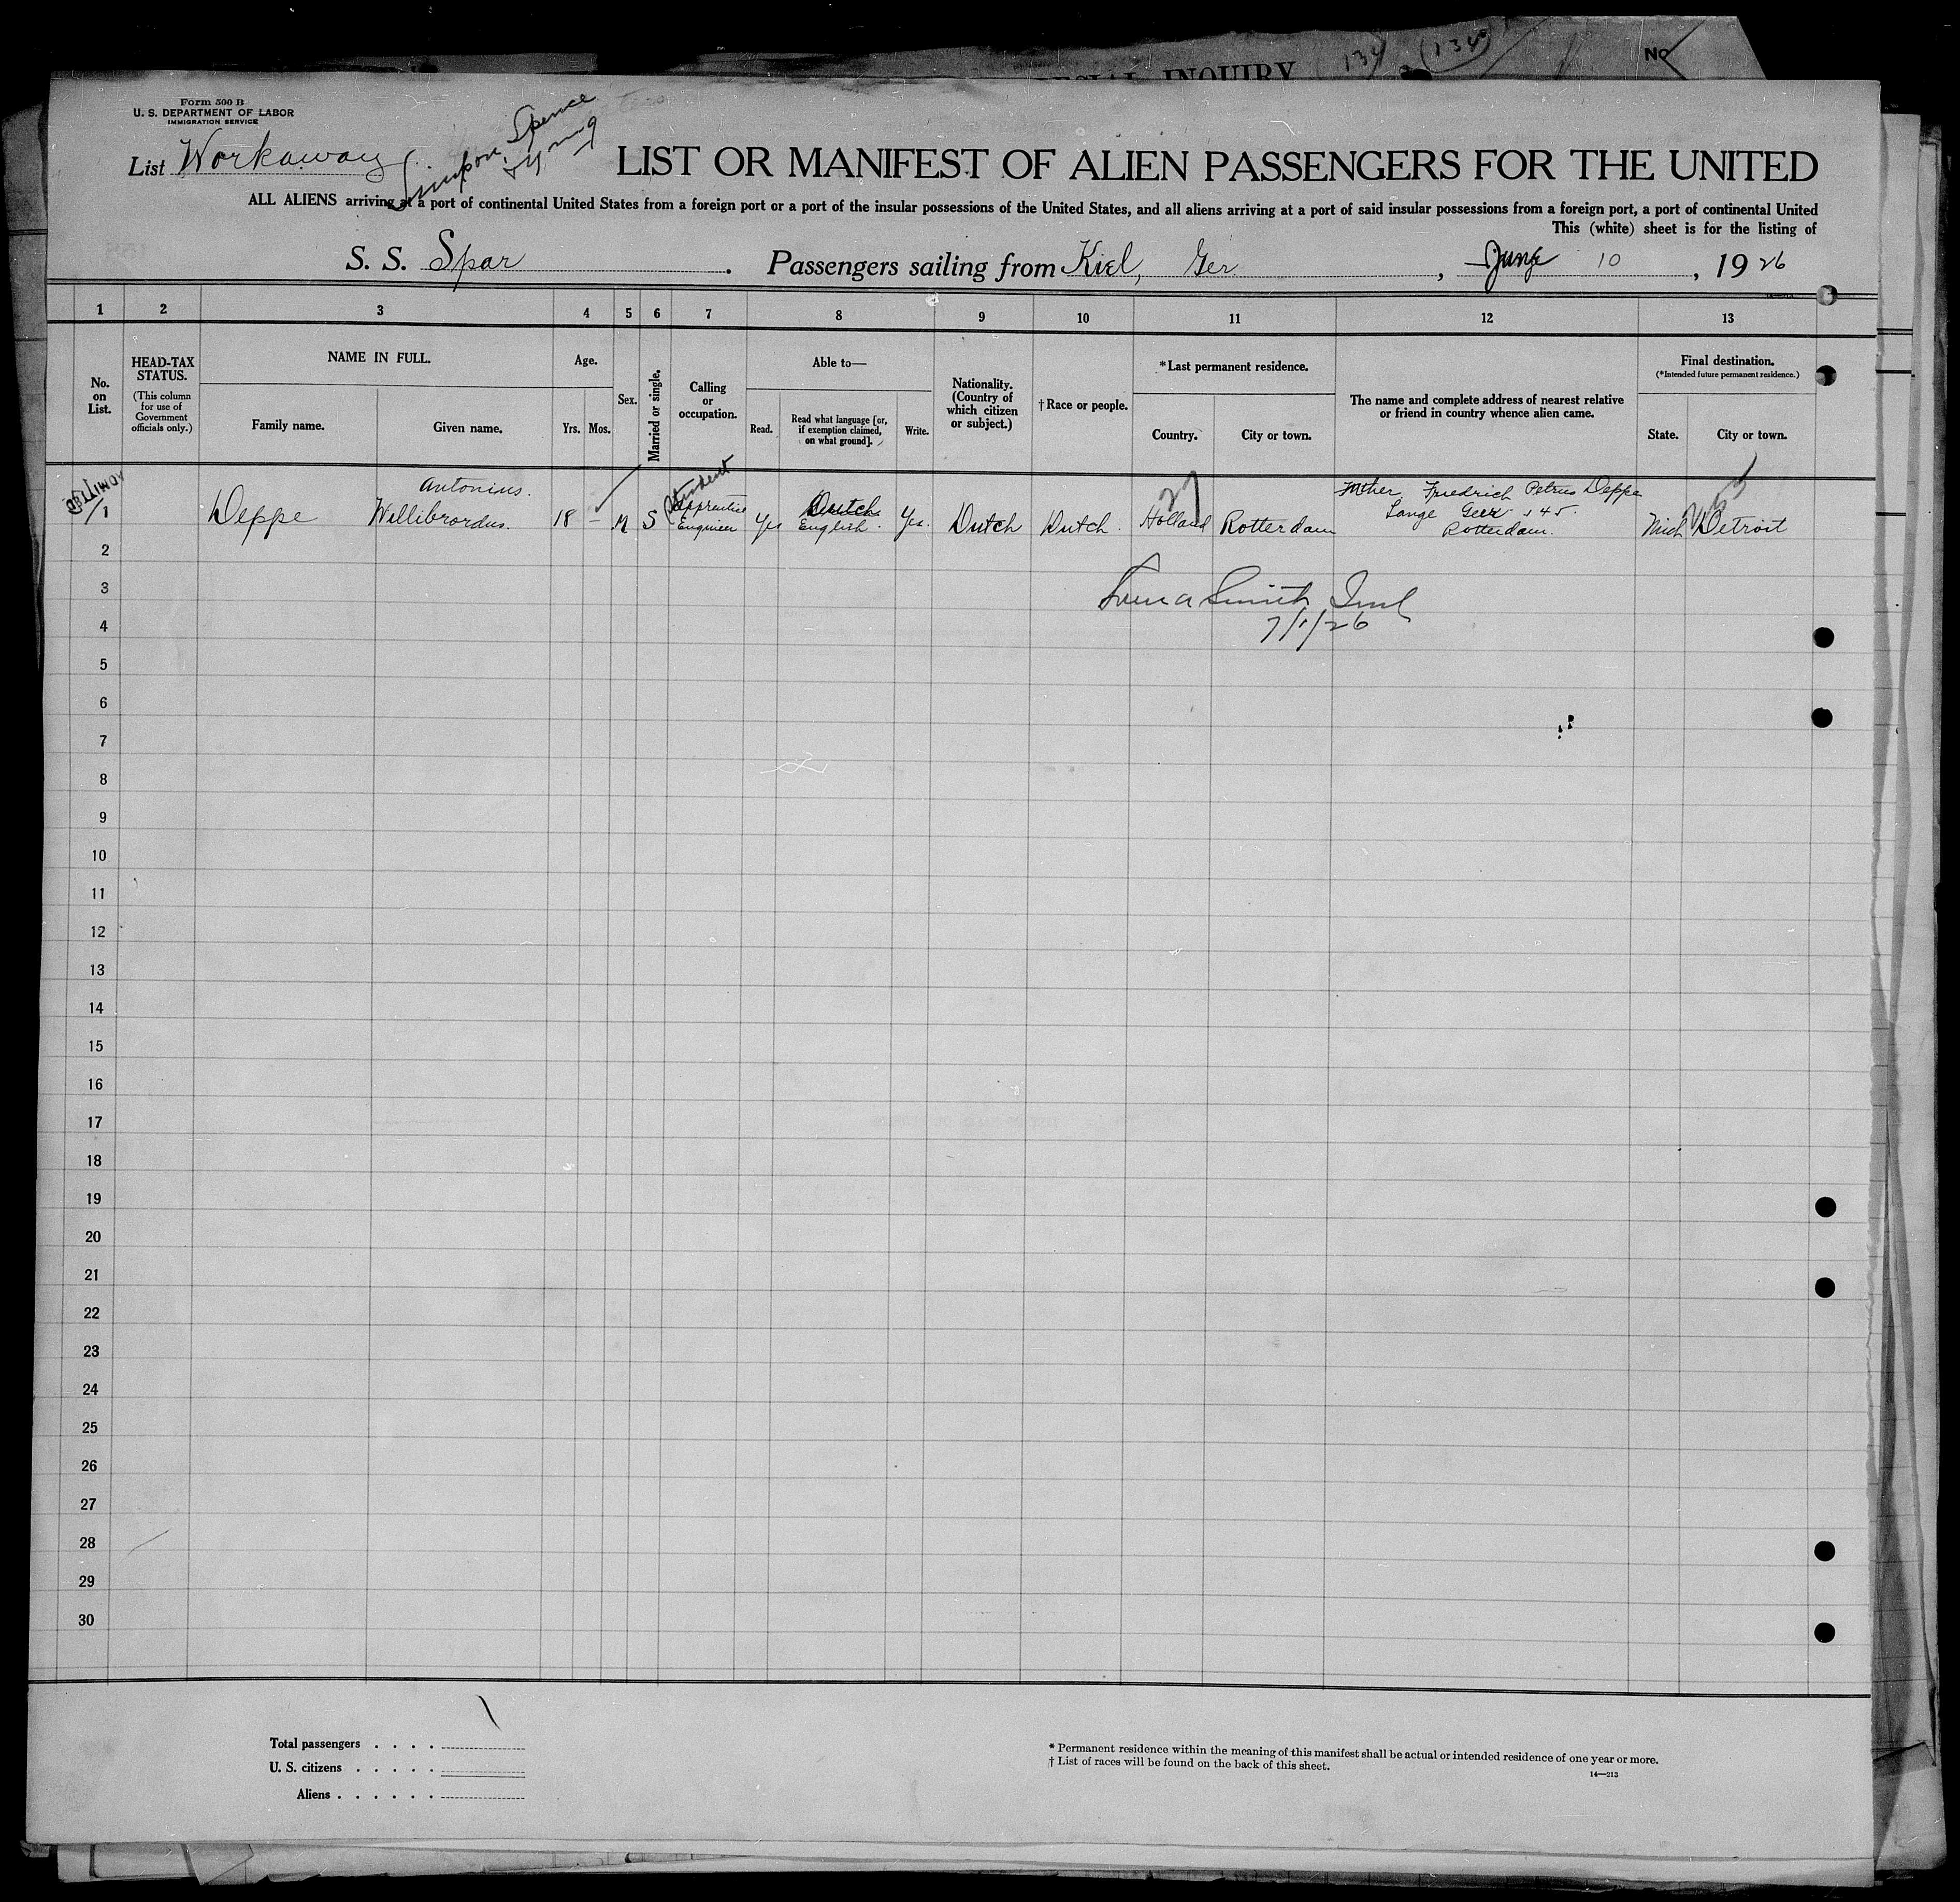 SPECIAL INQUIRY
134
(134)
No
Form 500 B
U. S. DEPARTMENT OF LABOR
IMMIGRATION SERVICE
List Workaway
Simpson Spence
& Young
LIST OR MANIFEST OF ALIEN PASSENGERS FOR THE UNITED
ALL ALIENS arriving at a port of continental United States from a foreign port or a port of the insular possessions of the United States, and all aliens arriving at a port of said insular possessions from a foreign port, a port of continental United
This (white) sheet is for the listing of
S. S. Spar . Passengers sailing from Kiel, Ger , June 10 , 19 26
1 2 3 4 5 6 7 8 9 10 11 12 13
No. on List.
HEAD-TAX STATUS.
(This column for use of Government officials only.)
NAME IN FULL.
Family name.
Given name.
Age.
Yrs. Mos.
Sex.
Married or single.
Calling or occupation.
Able to—
Read.
Read what language [or, if exemption claimed, on what ground].
Write.
Nationality. (Country of which citizen or subject.)
† Race or people.
* Last permanent residence.
Country.
City or town.
The name and complete address of nearest relative or friend in country whence alien came.
Final destination.
(*Intended future permanent residence.)
State.
City or town.
ADMITTED
Antonius.
Student
27
1 Deppe Willibrordus. 18 – M S Apprentice Engineer Yes Dutch English. Yes. Dutch Dutch. Holland Rotterdam Father Friedrich Petrus Deppe Lange Geer 145. Rotterdam. Mich Detroit
2
3
Smith
4
7/1/26
5
6
7
8
9
10
11
12
13
14
15
16
17
18
19
20
21
22
23
24
25
26
27
28
29
30
Total passengers . . . .
U. S. citizens . . . . .
Aliens . . . . . .
* Permanent residence within the meaning of this manifest shall be actual or intended residence of one year or more.
† List of races will be found on the back of this sheet.
14—213